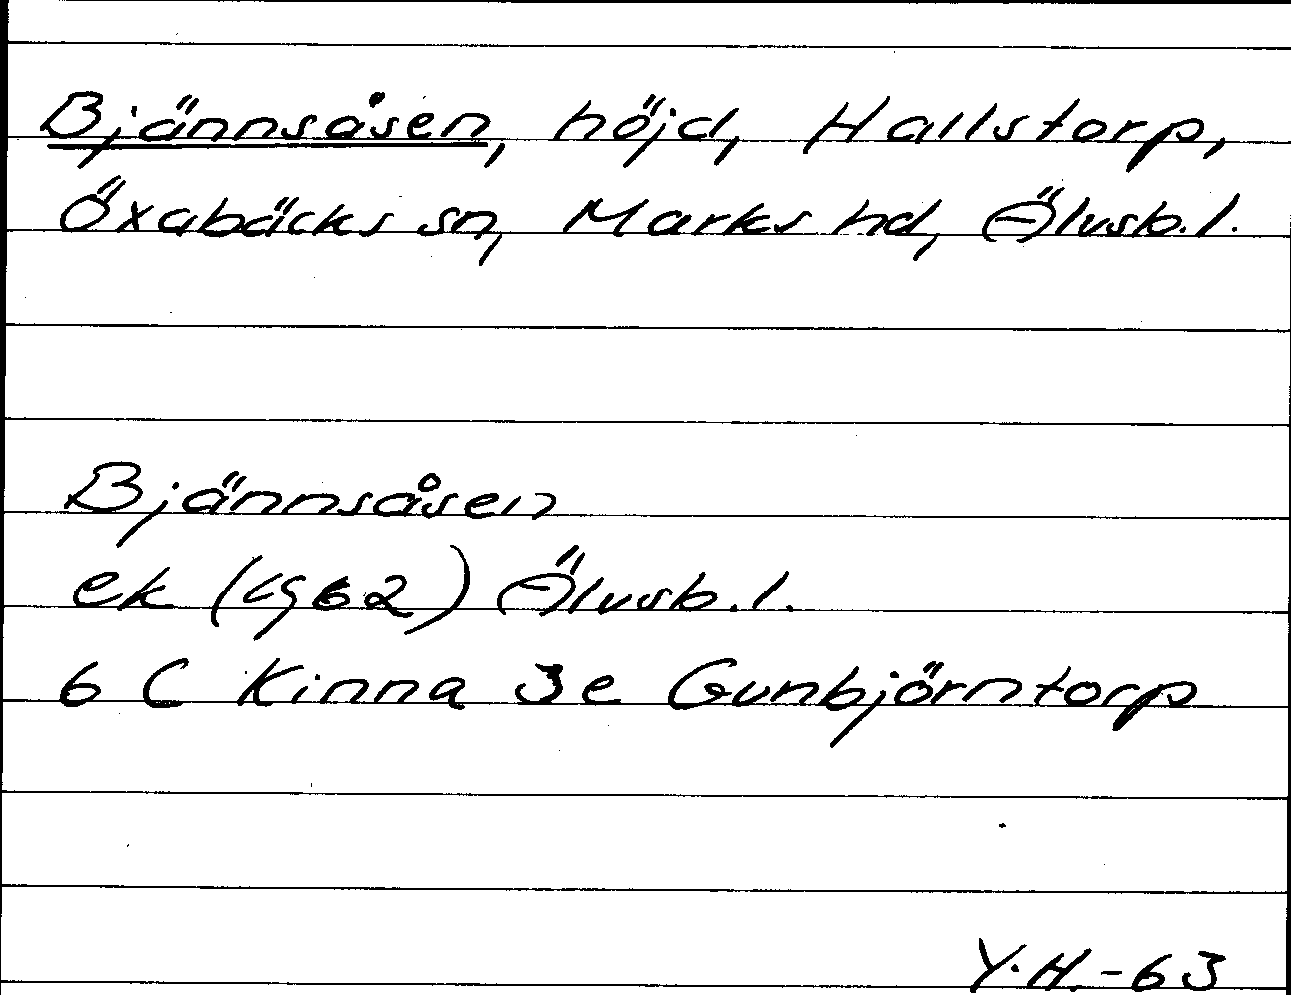 Bjännsåsen, höjd, Hallstorp,
Öxabäcks sn, Marks hd, Älvsb.l.
Bjännsåsen
ek (1962) Älvsb.l.
6 C Kinna 3e Gunbjörntorp
Y.H.-63